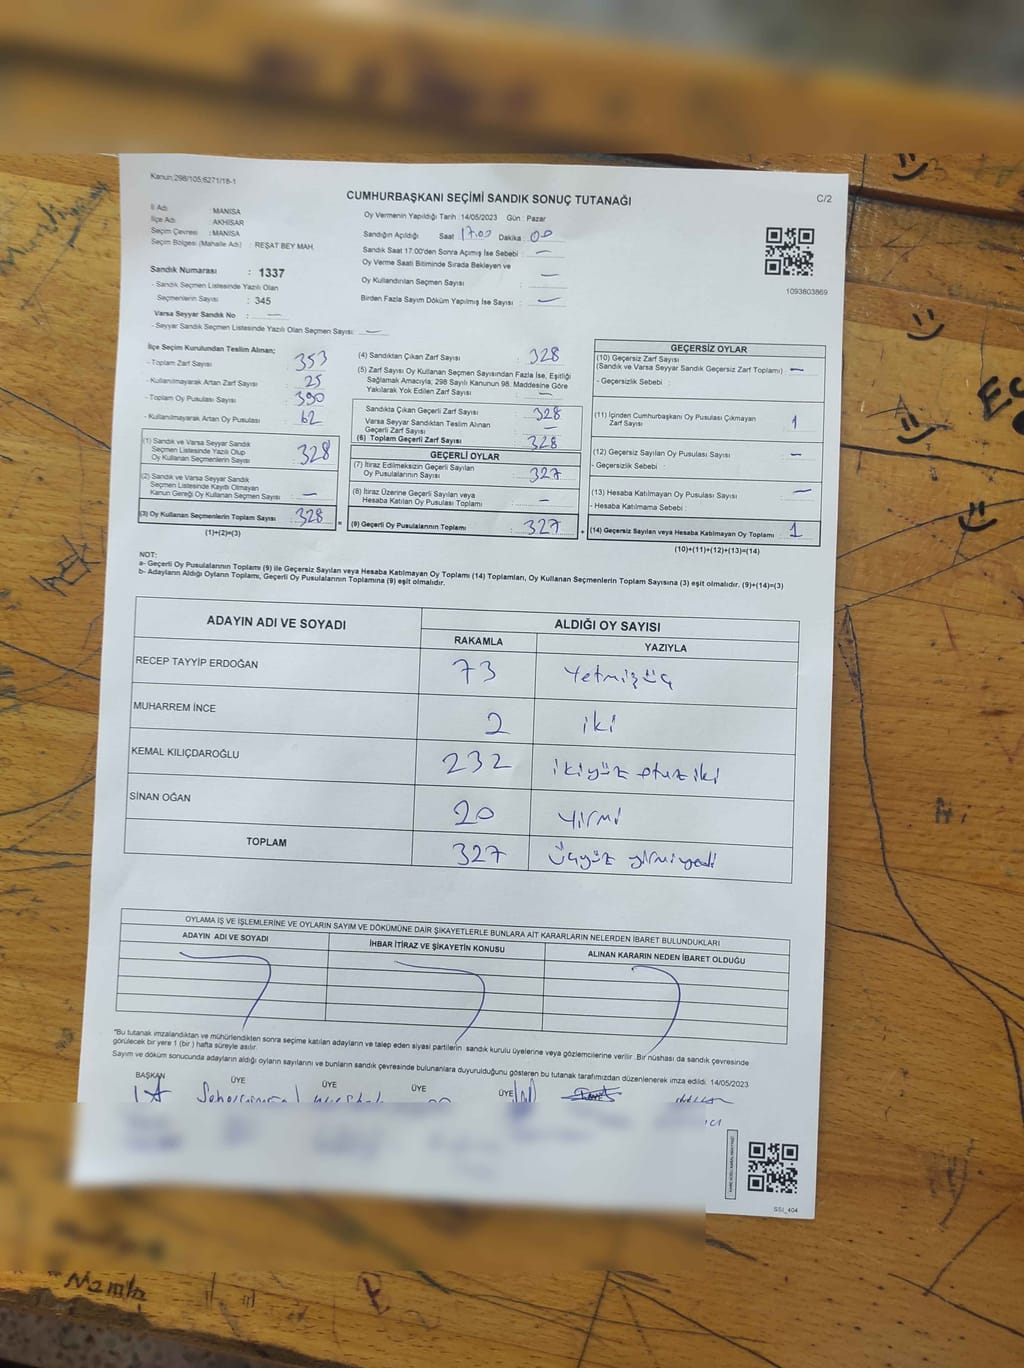 Kanun:298/105;6271/18-1
CUMHURBAŞKANI SEÇİMİ SANDIK SONUÇ TUTANAĞI
C/2
İl Adı : MANİSA
İlçe Adı : AKHİSAR
Seçim Çevresi : MANİSA
Seçim Bölgesi (Mahalle Adı) : REŞAT BEY MAH.
Sandık Numarası : 1337
- Sandık Seçmen Listesinde Yazılı Olan
Seçmenlerin Sayısı : 345
Varsa Seyyar Sandık No : —
- Seyyar Sandık Seçmen Listesinde Yazılı Olan Seçmen Sayısı : —
Oy Vermenin Yapıldığı Tarih : 14/05/2023 Gün : Pazar
Sandığın Açıldığı Saat 17.00 Dakika : 00
Sandık Saat 17:00'den Sonra Açımış İse Sebebi : —
Oy Verme Saati Bitiminde Sırada Bekleyen ve
Oy Kullandırılan Seçmen Sayısı : —
Birden Fazla Sayım Döküm Yapılmış İse Sayısı : —
1093803869
İlçe Seçim Kurulundan Teslim Alınan;
- Toplam Zarf Sayısı : 353
- Kullanılmayarak Artan Zarf Sayısı : 25
- Toplam Oy Pusulası : 390
- Kullanılmayarak Artan Oy Pusulası : 62
(1) Sandık ve Varsa Seyyar Sandık
Seçmen Listesinde Yazılı Olup
Oy Kullanan Seçmenlerin Sayısı : 328
(2) Sandık ve Varsa Seyyar Sandık
Seçmen Listesinde Kayıtlı Olmayan
Kanun Gereği Oy Kullanan Seçmen Sayısı : —
(3) Oy Kullanan Seçmenlerin Toplam Sayısı : 328
(1)+(2)=(3)
(4) Sandıktan Çıkan Zarf Sayısı : 328
(5) Zarf Sayısı Oy Kullanan Seçmen Sayısından Fazla İse, Eşitliği
Sağlamak Amacıyla; 298 Sayılı Kanunun 98. Maddesine Göre
Yakılarak Yok Edilen Zarf Sayısı : —
Sandıkta Çıkan Geçerli Zarf Sayısı : 328
Varsa Seyyar Sandıktan Teslim Alınan
Geçerli Zarf Sayısı : —
(6) Toplam Geçerli Zarf Sayısı : 328
GEÇERLİ OYLAR
(7) İtiraz Edilmeksizin Geçerli Sayılan
Oy Pusulalarının Sayısı : 327
(8) İtiraz Üzerine Geçerli Sayılan veya
Hesaba Katılan Oy Pusulası Toplamı : —
= (9) Geçerli Oy Pusulalarının Toplamı : 327
GEÇERSİZ OYLAR
(10) Geçersiz Zarf Sayısı
(Sandık ve Varsa Seyyar Sandık Geçersiz Zarf Toplamı) : —
- Geçersizlik Sebebi :
(11) İçinden Cumhurbaşkanı Oy Pusulası Çıkmayan
Zarf Sayısı : 1
(12) Geçersiz Sayılan Oy Pusulası Sayısı : —
- Geçersizlik Sebebi :
(13) Hesaba Katılmayan Oy Pusulası Sayısı : —
- Hesaba Katılmama Sebebi :
+ (14) Geçersiz Sayılan veya Hesaba Katılmayan Oy Toplamı : 1
(10)+(11)+(12)+(13)=(14)
NOT:
a- Geçerli Oy Pusulalarının Toplamı (9) ile Geçersiz Sayılan veya Hesaba Katılmayan Oy Toplamı (14) Toplamları, Oy Kullanan Seçmenlerin Toplam Sayısına (3) eşit olmalıdır. (9)+(14)=(3)
b- Adayların Aldığı Oyların Toplamı, Geçerli Oy Pusulalarının Toplamına (9) eşit olmalıdır.
ADAYIN ADI VE SOYADI ALDIĞI OY SAYISI
RAKAMLA YAZIYLA
RECEP TAYYİP ERDOĞAN 73 Yetmişüç
MUHARREM İNCE 2 iki
KEMAL KILIÇDAROĞLU 232 ikiyüz otuz iki
SİNAN OĞAN 20 Yirmi
TOPLAM 327 üçyüz yirmiyedi
OYLAMA İŞ VE İŞLEMLERİNE VE OYLARIN SAYIM VE DÖKÜMÜNE DAİR ŞİKAYETLERLE BUNLARA AİT KARARLARIN NELERDEN İBARET BULUNDUKLARI
ADAYIN ADI VE SOYADI İHBAR İTİRAZ VE ŞİKAYETİN KONUSU ALINAN KARARIN NEDEN İBARET OLDUĞU
*Bu tutanak imzalandıktan ve mühürlendikten sonra seçime katılan adayların ve talep eden siyasi partilerin sandık kurulu üyelerine veya gözlemcilerine verilir. Bir nüshası da sandık çevresinde
görülecek bir yere 1 (bir) hafta süreyle asılır.
Sayım ve döküm sonucunda adayların aldığı oyların sayılarını ve bunların sandık çevresinde bulunanlara duyurulduğunu gösteren bu tutanak tarafımızdan düzenlenerek imza edildi. 14/05/2023
BAŞKAN ÜYE ÜYE ÜYE ÜYE
SSI_404